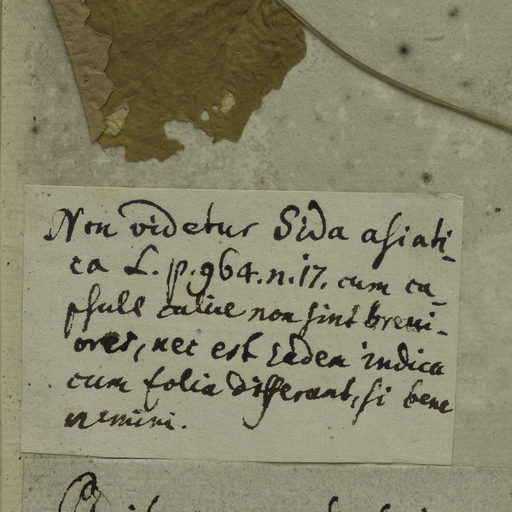 Non videtur Sida asiati-
ca L. p. 964. n. 17. cum ca-
psulę calice non sint brevi-
ores, nec est eadem indica
cum folia differant, si bene
memini.